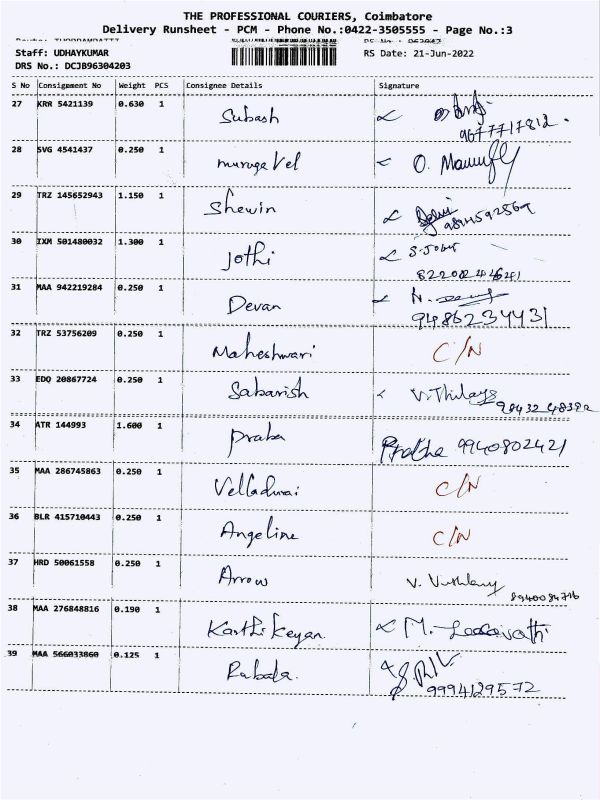 THE PROFESSIONAL COURIERS, Coimbatore
Delivery Runsheet - PCM - Phone No.:0422-3505555 - Page No.:3
Staff: UDHAYKUMAR
RS Date: 21-Jun-2022
DRS No.: DCJB96304203
S No Consignment No Weight PCS Consignee Details Signature
27 KRR 5421139 0.630 1 Subash
9677717812.
28 SVG 4541437 0.250 1 murugavel O.
29 TRZ 145652943 1.150 1 Shewin
30 IXM 501480032 1.300 1 Jothi
31 MAA 942219284 0.250 1 Devan N.
9486234431
32 TRZ 53756209 0.250 1 Maheshwari C/N
33 EDQ 20867724 0.250 1 Sabarish
34 ATR 144993 1.600 1 Praba 9940802421
35 MAA 286745863 0.250 1 Velladurai C/N
36 BLR 415710443 0.250 1 Angeline C/N
37 HRD 50061558 0.250 1 Arrow V.
38 MAA 276848816 0.190 1 Karthikeyan M.
39 MAA 566033860 0.125 1
9994129572